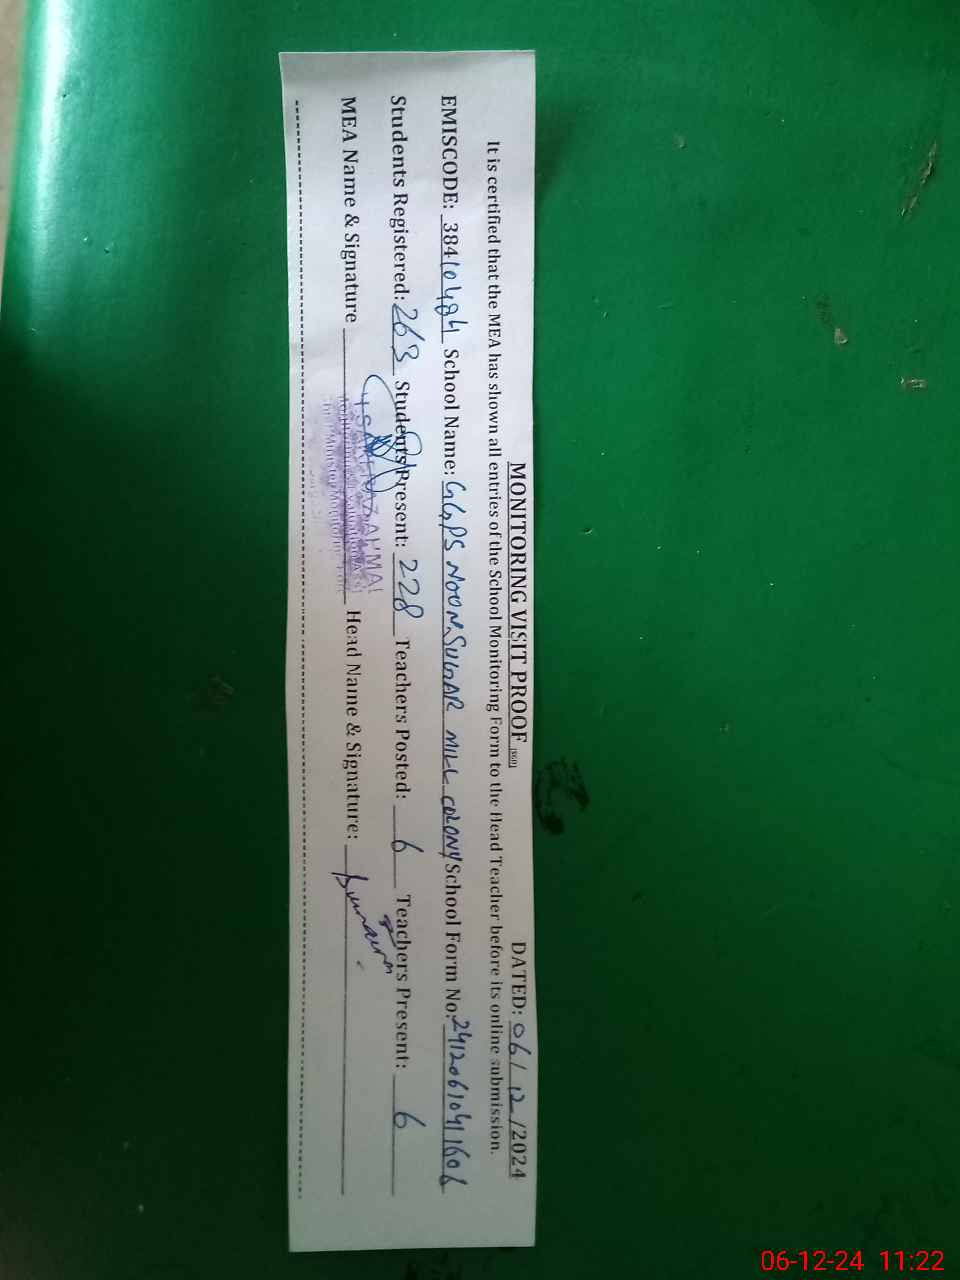 MONITORING VISIT PROOF DATED: 06/12/2024
It is certified that the MEA has shown all entries of the School Monitoring Form to the Head Teacher before its online submission.
EMISCODE: 38410484 School Name: GGPS NOON SUGAR MILL COLONY School Form No: 2412061041606
Students Registered: 263 Students Present: 228 Teachers Posted: 6 Teachers Present: 6
MEA Name & Signature Head Name & Signature:
06-12-24 11:22